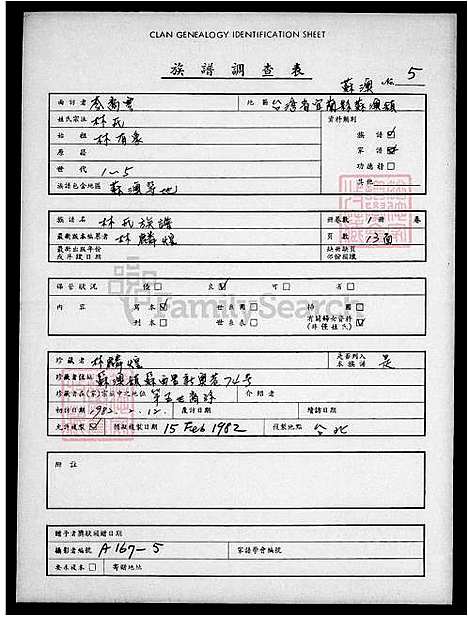 CLAN GENEALOGY IDENTIFICATION SHEET
族譜調查表
蘇澳 No 5
面訪者 地區 台灣省宜蘭縣蘇澳鎮
姓氏宗族 林氏 資料類別
始祖 林有 族譜 ☑
原籍 家譜 ☑
世代 1-5 功德榜 □
族譜包含地區 蘇澳等地 其他
族譜名 林氏族譜 冊卷數 1冊 卷
最新版本編纂者 林麟煌 頁數 13面
最新出版年份或序建日期 缺冊缺頁部份描讓
保管狀況 優 □ 良 ☑ 可 □ 劣 □
內容 寫本 ☑ 世系圖 □ 插圖 □
刊本 □ 世系表 □ 有關婦女資料(非僅姓氏) □
FamilySearch
珍藏者 林麟煌 是否列入本族譜 是
珍藏者住址 蘇澳鎮蘇西里新興巷74号
珍藏者在(家)宗族中之地位 第五世裔孫 介紹者
初訪日期 1982.2.12. 復訪日期 續訪日期
允許複製 ☑ 開始複製日期 15 Feb 1982 複製地點 台北
附註
贈予者獎狀頒贈日期
攝影者編號 A167-5 家譜學會編號
要求複本 □ 寄贈地址